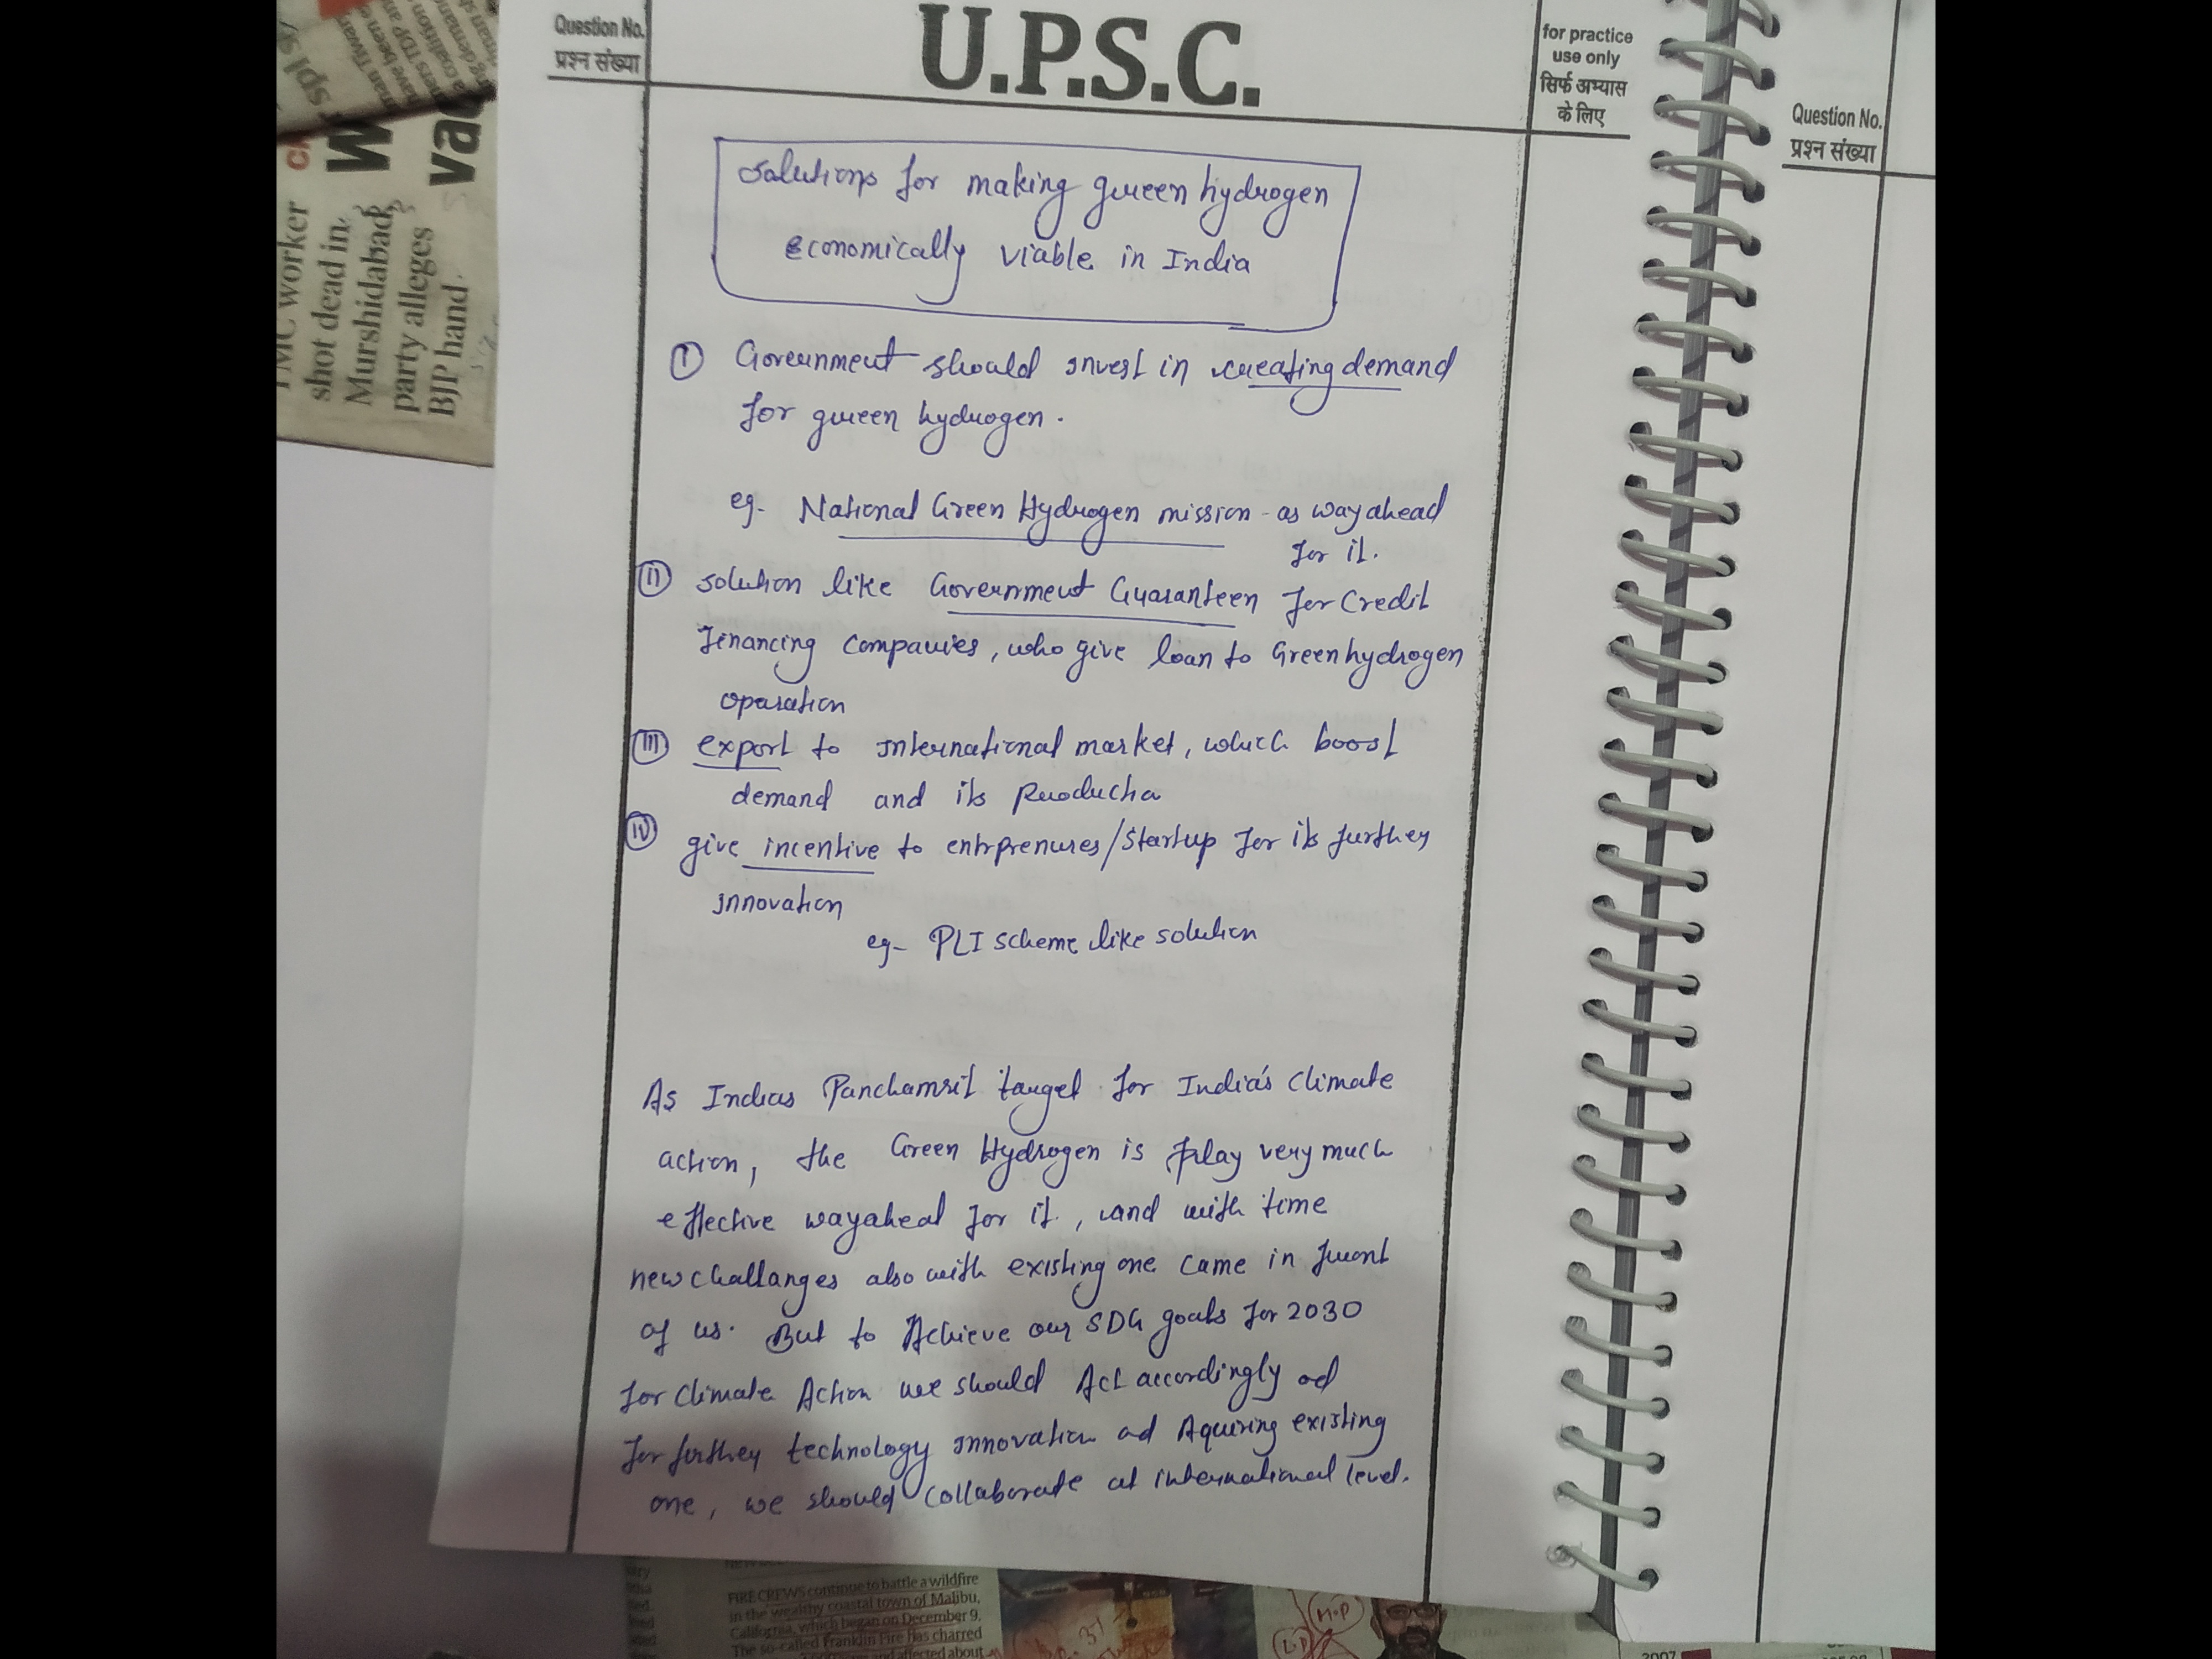 Question No.
प्रश्न संख्या
U.P.S.C.
for practice
use only
सिर्फ अभ्यास
के लिए
Question No.
प्रश्न संख्या
Solutions for making green hydrogen
economically viable in India
I Government should invest in creating demand
for green hydrogen.
eg- National Green Hydrogen mission - as way ahead
for it.
II solution like Government Guaranteen for Credit
financing companies, who give loan to Green hydrogen
oparation
III export to international market, which boost
demand and its producha
IV give incentive to entrprenures/Startup for its further
innovation
eg- PLI scheme like solution
As Indias Panchamrit target for India's climate
action, the Green Hydrogen is play very much
effective wayahead for it, and with time
new challanges also with existing one came in front
of us. But to Achieve our SDG goals for 2030
for climate Action we should Act accordingly ad
for further technology innovation ad Aquiring existing
one, we should collaborate at international level.
TMC worker
shot dead in
Murshidabad,
party alleges
BJP hand
FIRE CREWS continue to battle a wildfire
in the wealthy coastal town of Malibu,
California, which began on December 9.
The so-called Franklin Fire has charred
and affected about
M.P
2007